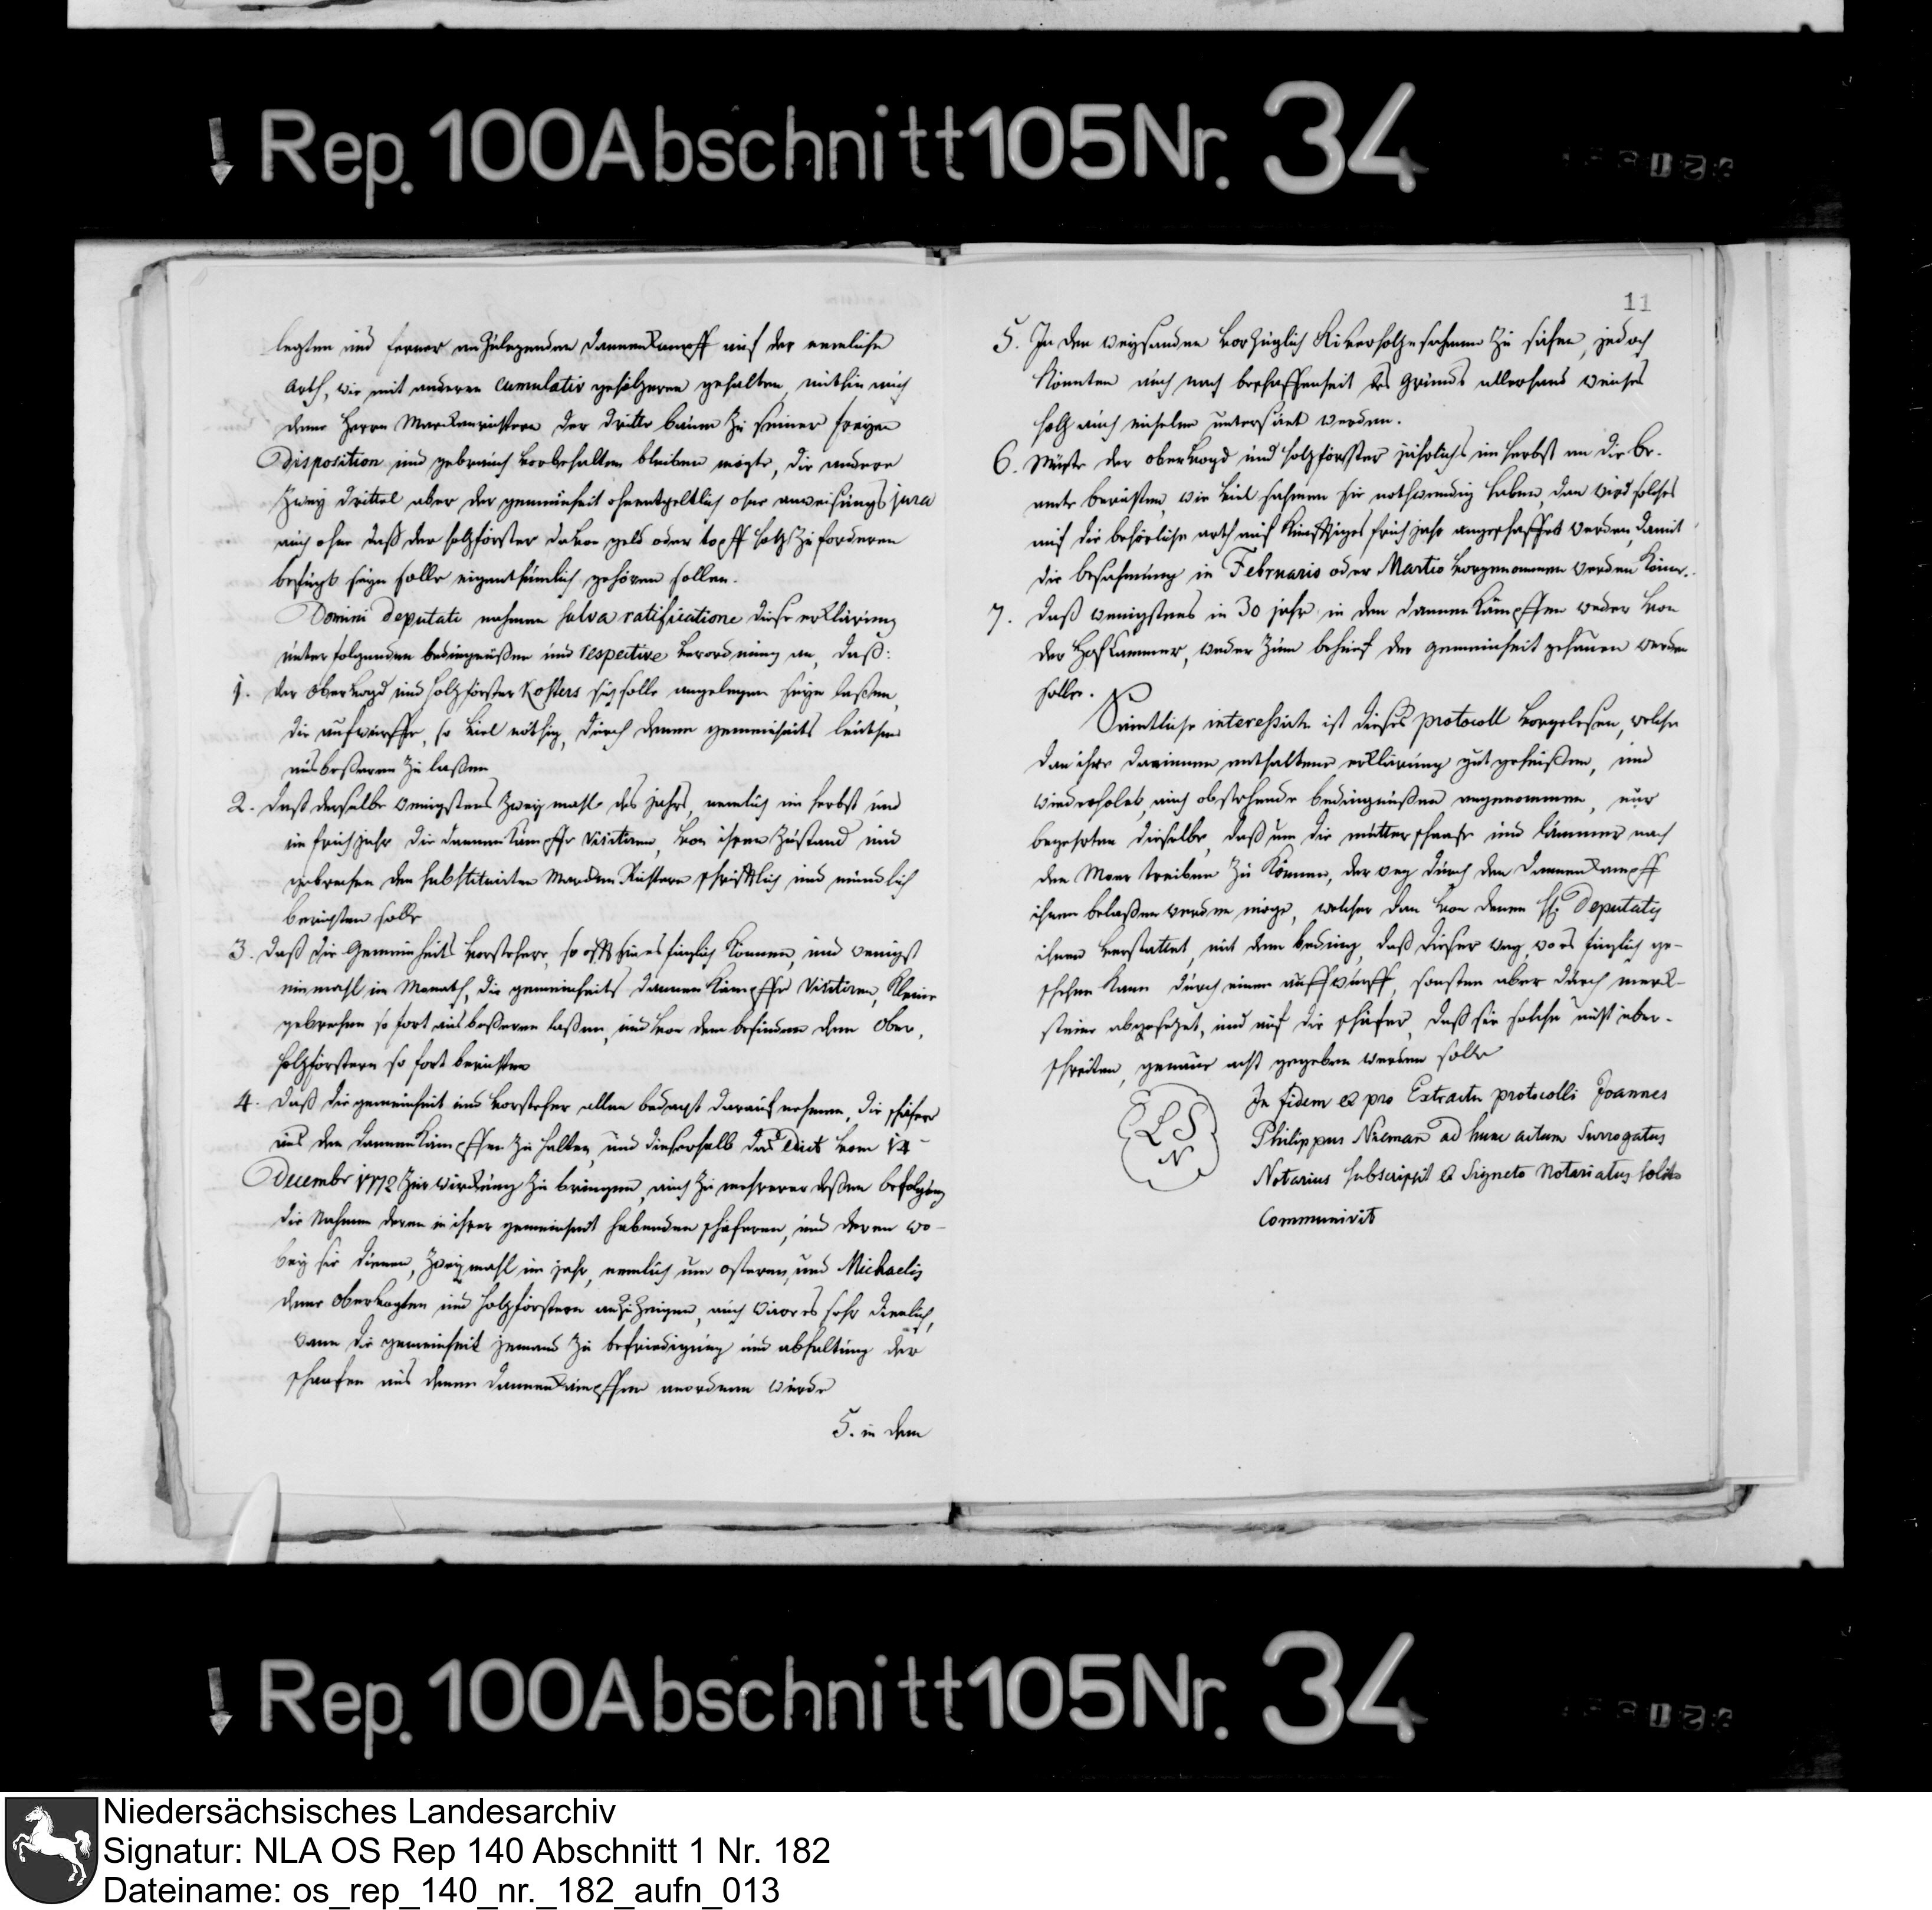 Rep. 100 Abschnitt 105 Nr. 34
legten und ferner anzulegenden dannenkampff auf der nemliche
arth, wie mit anderen cumulativ gehölzeren gehalten, mithin auch
denn Herrn Marckenrichteren der dritte baum zu seiner freyen
Disposition und gebrauch vorbehalten bleiben mögte, die andere
zwey drittel aber der gemeinheit ohnentgeltlich ohne anweisungs jura
auch ohne daß der holzförster davon geld oder topff holz zu forderen
befügt seyn solle eigenthümlich gehören sollen.
Domini deputati nahmen salva ratificatione diese erklärung
unter folgenden bedingnüßen und respective verordnung an, daß:
1. der obervogd und holzförster Kosters sich solle angelegen seyn laßen,
die aufwürffe, so viel nöthig, durch denen gemeinheits leuthen
ausbeßeren zu laßen
2. daß derselbe wenigstens zwey mahl des jahrs, nemlich im herbst und
im früh jahr die dannenkämpffe visitiren, von ihren zustand und
gebrechen den substituirten Marcken Richtern schrifftlich und mündlich
berichten solle
3. daß die Gemeinheits vorstehere, so offt sie es füglich können, und wenigst
ein mahl im Monath, die gemeinheits dannenkämpffe visitiren, kleine
gebrechen so fort ausbeßeren laßen, und von dem befinden dem Ober,
holzförstern so fort berichten
4. daß die gemeinheit und vorsteher allen bedacht darauf nehmen, die schäfere
aus den dannenkämpffen zu halten, und dieserhalb das Edict vom 14
December 1772 zur wirckung zu bringen, auch zu mehrerer deßen befolgung
die Nahmen deren in ihrer gemeinheit habenden schäferen, und deren wo-
bey sie dienen, zwey mahl im jahr, nemlich um osteren, und Michaelis
denen Obervogten und holzförstern anzuzeigen, auch wäre es sehr dienlich,
wann die gemeinheit jemand zu befriedigung und abhaltung der
schaafen aus denen dannenkämpffen anordnen würde
5. in dem
11
5. In den weysanden vorzüglich Kiverholzesahmen zu sähen, jedoch
könnten auch nach beschaffenheit des grunds allerhand weiches
holz auch eichelen untersäet werden.
6. Müste der obervogd und holzförster jährlichs im herbst an die be-
amte berichten, wie viel sahmen sie nothwendig haben, dan wird solches
auf die behörliche arth auf künfftiges früh jahr angeschaffet werden, damit
die besahmung in Februario oder Martio vorgenommen werden könne.
7. daß wenigstens in 30 jahr in den dannenkämpffen weder von
der Hofkammer, weder zum behuef der gemeinheit gehauen werden
solle.
Sämtliche interessirte ist dieses protocoll vorgelesen, welche
dan ihre darinnen enthaltene erklärung gutgeheißen, und
wiederholet, auch obstehende bedingnüßen angenommen, nur
begehrten dieselbe, daß um die mutterschaafe und lämmer nach
den Moor treiben zu können, der weg durch den dannenkampff
ihnen belaßen werden möge, welcher dan von denen HH. Deputatis
ihnen verstattet, mit dem beding, daß dieser weg, wo es füglich ge-
schehen kann durch einen auffwurff, sonsten aber durch merck-
steine abgesezet, und auf die schäfer, daß sie solche nicht über-
schreiten, genaue acht gegeben werden solle
LS
N
In fidem et pro Extractu protocolli Joannes
Philippus Nieman ad hunc actum Surrogatus
Notarius subscripsit et Signeto Notariatus solito
Communivit
Rep. 100 Abschnitt 105 Nr. 34
Niedersächsisches Landesarchiv
Signatur: NLA OS Rep 140 Abschnitt 1 Nr. 182
Dateiname: os_rep_140_nr._182_aufn_013